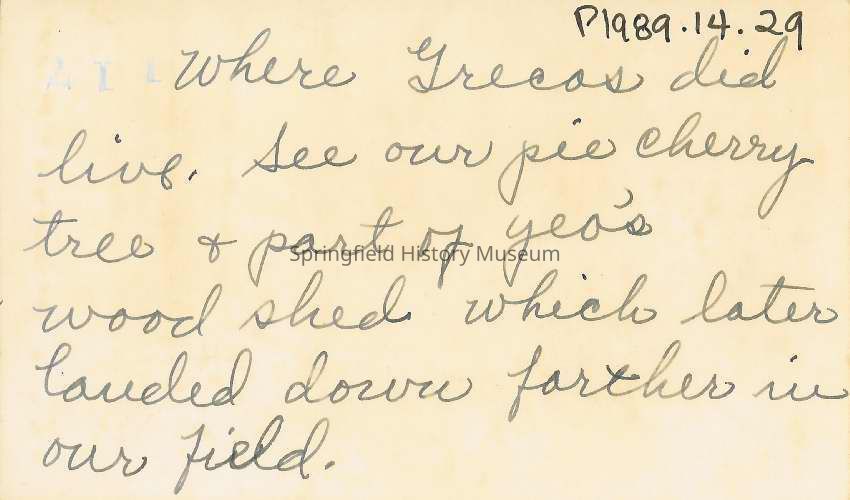 P1989.14.29
Where Grecos did
live. See our pie cherry
tree & part of yeo's
Springfield History Museum
wood shed which later
landed down farther in
our field.